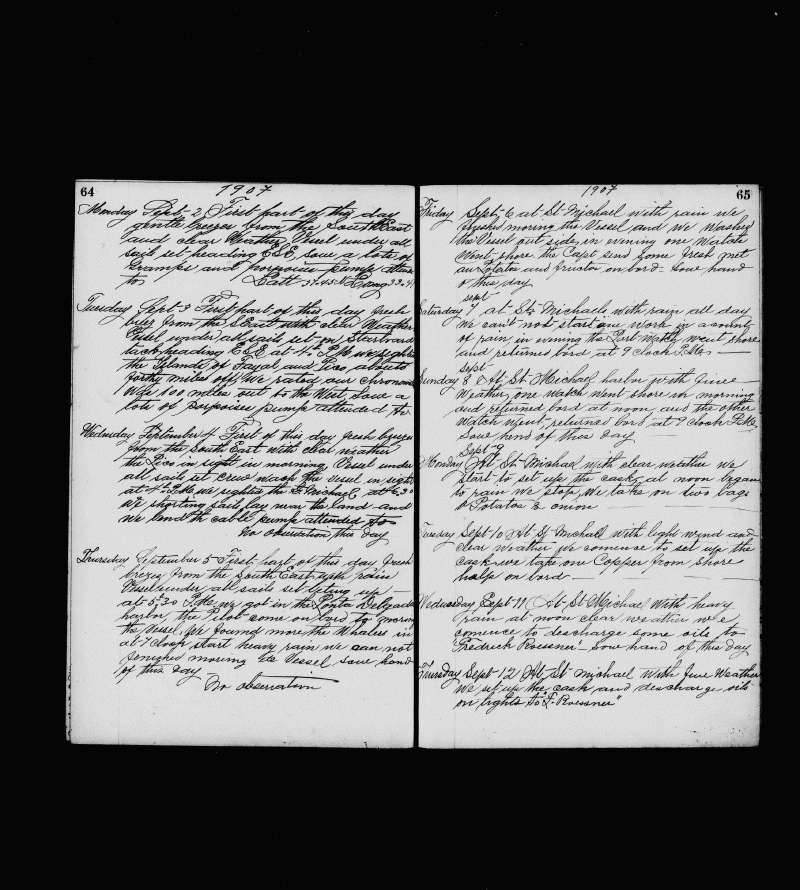 64
1907
Monday Sept- 2 First part of this day
gentle breeze from the South East
and clear Weather Vessel under all
sails set heading ESE, Saw a lots of
Gramps and porpoise pump attend
to Latt 37.45 N Long 33.
Tuesday Sept 3 First part of this day fresh
from the S East with clear Weather
Vessel under all sails set on Starbord
tack heading ESE at 4 P.M. we sight
the Islands of Fayal and Pico about
forty miles off We rated our chronom
was 100 miles out to the West Saw a
lots of porpoise pump attended to
Wednesday September 4 First of this day fresh breeze
from the South East with clear weather
the Pico in sight in morning Vessel under
all sails set crew wash the vessel in sight
at 4 P.M. we sighted the St Michael, at 6.30
we shorting sails lay near the land and
we land th cable pump attended to
No observation this day
Thursday September 5 First part of this day fresh
breeze from the South East with rain
Vessel under all sails set up
at 5.30 P.M. we got in the Ponta Delgada
harbor the pilot come on bord to moring
the Vessel We found more the Whalers in
at 7 clock start heavy rain we can not
fenished moring the Vessel Saw hand
of this day
No observation
65
1907
Friday Sept- 6 at St Michael with rain we
finishd moring the Vessel and we Washed
the Vessel out side, in evning one Watch
Went shore the Capt send some fresh met
an Potatos and on bord- Saw hand
of this day
Sept
Saturday 7 at St. Michaels with rain all day
We can't not start on work in a count
of rain in evning the Port watch went shore
and returned bord at 9 clock P.M.
Sept
Sunday 8 At St Michael harbor with fine
Weather one watch went shore in morning
and returned bord at noon and the other
watch went returned bord at 9 clock P.M.
Saw hend of this day
Sept 9
Monday At St Michael with clear weather we
start to set up the cask, at noon began
to rain we stop, we take on two bags
of Potatos & onion
Tuesday Sept 10 At St Michael with light wind and
clear weather We comence to set up the
cask we take one Copper from shore
help on bord
Wednesday Sept 11 At St Michael With heavy
rain at noon clear weather we
comence to descharge some oils to
Fredrick Roessner Saw hand of this day
Thursday Sept 12 At St Michael With fine Weather
We set up the cask and descharge oils
on lights to "F. Roessner"